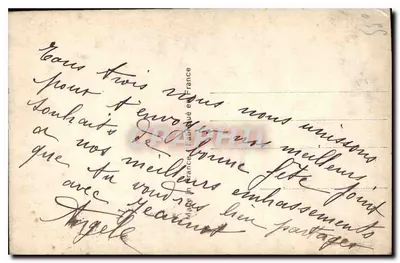 Tous trois nous nous unissons
pour t'envoyer nos meilleurs
souhaits de bonne fête joint
a nos meilleurs embrassements
que tu voudras bien partager
avec Jeannot
Angèle
Made in France Fabriqué en France